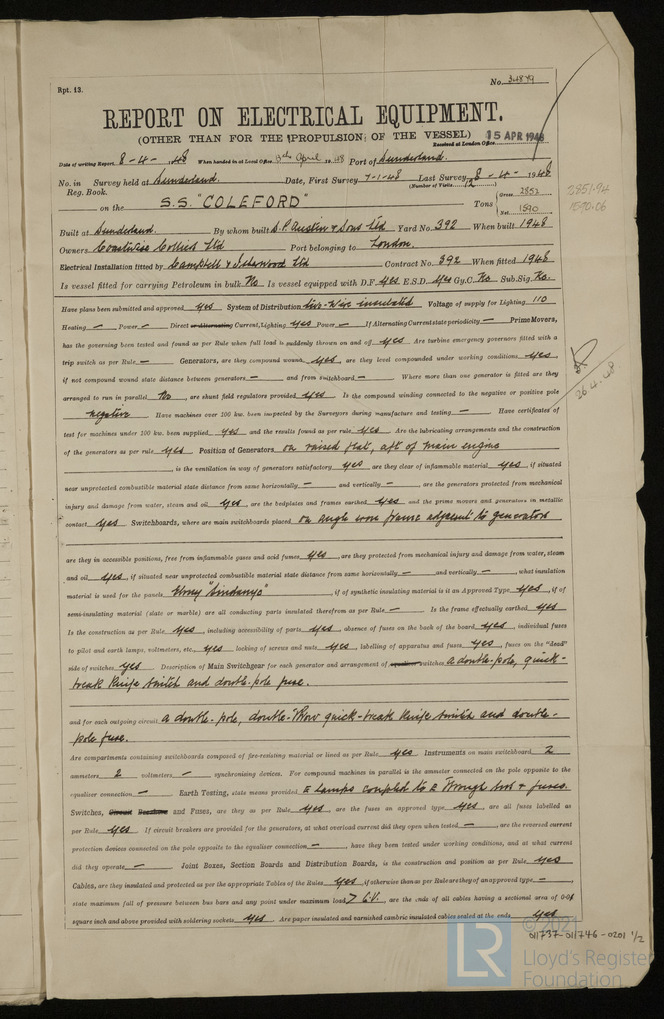 No. 34879
Rpt. 13.
REPORT ON ELECTRICAL EQUIPMENT.
(OTHER THAN FOR THE PROPULSION OF THE VESSEL) 15 APR 1948
Received at London Office
Date of writing Report 8-4-48 When handed in at Local Office 13th April 1948 Port of Sunderland.
No. in Survey held at Sunderland. Date, First Survey 7-1-48 Last Survey 8-4-1948
Reg. Book. (Number of Visits 12)
on the S.S. "COLEFORD" Tons Gross 2852 2851.94
Net 1590 1590.06
Built at Sunderland. By whom built S.P. Austin & Sons Ltd Yard No. 392 When built 1948
Owners Coastwise Colliers Ltd Port belonging to London.
Electrical Installation fitted by Campbell & Isherwood Ltd Contract No. 392 When fitted 1948
Is vessel fitted for carrying Petroleum in bulk No Is vessel equipped with D.F. Yes E.S.D. Yes Gy.C. No Sub.Sig. No.
Have plans been submitted and approved yes System of Distribution two-wire insulated Voltage of supply for Lighting 110
Heating — Power — Direct or Alternating Current, Lighting yes Power — If Alternating Current state periodicity — Prime Movers,
has the governing been tested and found as per Rule when full load is suddenly thrown on and off yes Are turbine emergency governors fitted with a
trip switch as per Rule — Generators, are they compound wound yes, are they level compounded under working conditions yes,
if not compound wound state distance between generators — and from switchboard — Where more than one generator is fitted are they
arranged to run in parallel No, are shunt field regulators provided yes Is the compound winding connected to the negative or positive pole
negative Have machines over 100 kw. been inspected by the Surveyors during manufacture and testing — Have certificates of
26.4.48
test for machines under 100 kw. been supplied yes and the results found as per rule yes Are the lubricating arrangements and the construction
of the generators as per rule yes Position of Generators on raised flat, aft of main engine
, is the ventilation in way of generators satisfactory yes are they clear of inflammable material yes, if situated
near unprotected combustible material state distance from same horizontally — and vertically —, are the generators protected from mechanical
injury and damage from water, steam and oil yes, are the bedplates and frames earthed yes and the prime movers and generators in metallic
contact yes Switchboards, where are main switchboards placed on angle iron frame adjacent to generators
are they in accessible positions, free from inflammable gases and acid fumes yes, are they protected from mechanical injury and damage from water, steam
and oil yes, if situated near unprotected combustible material state distance from same horizontally — and vertically —, what insulation
material is used for the panels Ebony "Sindanyo", if of synthetic insulating material is it an Approved Type yes, if of
semi-insulating material (slate or marble) are all conducting parts insulated therefrom as per Rule — Is the frame effectually earthed yes
Is the construction as per Rule yes, including accessibility of parts yes, absence of fuses on the back of the board yes, individual fuses
to pilot and earth lamps, voltmeters, etc. yes locking of screws and nuts yes, labelling of apparatus and fuses yes, fuses on the "dead"
side of switches yes Description of Main Switchgear for each generator and arrangement of equaliser switches a double-pole, quick-
break knife switch and double-pole fuse.
and for each outgoing circuit a double-pole, double-throw quick-break knife switch and double-
pole fuse.
Are compartments containing switchboards composed of fire-resisting material or lined as per Rule yes Instruments on main switchboard 2
ammeters 2 voltmeters — synchronising devices. For compound machines in parallel is the ammeter connected on the pole opposite to the
equaliser connection — Earth Testing, state means provided E lamps coupled to E through swt & fuses.
Switches, Circuit Breakers and Fuses, are they as per Rule yes, are the fuses an approved type yes, are all fuses labelled as
per Rule yes If circuit breakers are provided for the generators, at what overload current did they open when tested —, are the reversed current
protection devices connected on the pole opposite to the equaliser connection —, have they been tested under working conditions, and at what current
did they operate — Joint Boxes, Section Boards and Distribution Boards, is the construction and position as per Rule yes
Cables, are they insulated and protected as per the appropriate Tables of the Rules yes, if otherwise than as per Rule are they of an approved type —
state maximum fall of pressure between bus bars and any point under maximum load > 6 V., are the ends of all cables having a sectional area of 0.04
square inch and above provided with soldering sockets yes Are paper insulated and varnished cambric insulated cables sealed at the ends yes
© 2021
011737-011746-0201 1/2
LR Lloyd's Register
Foundation